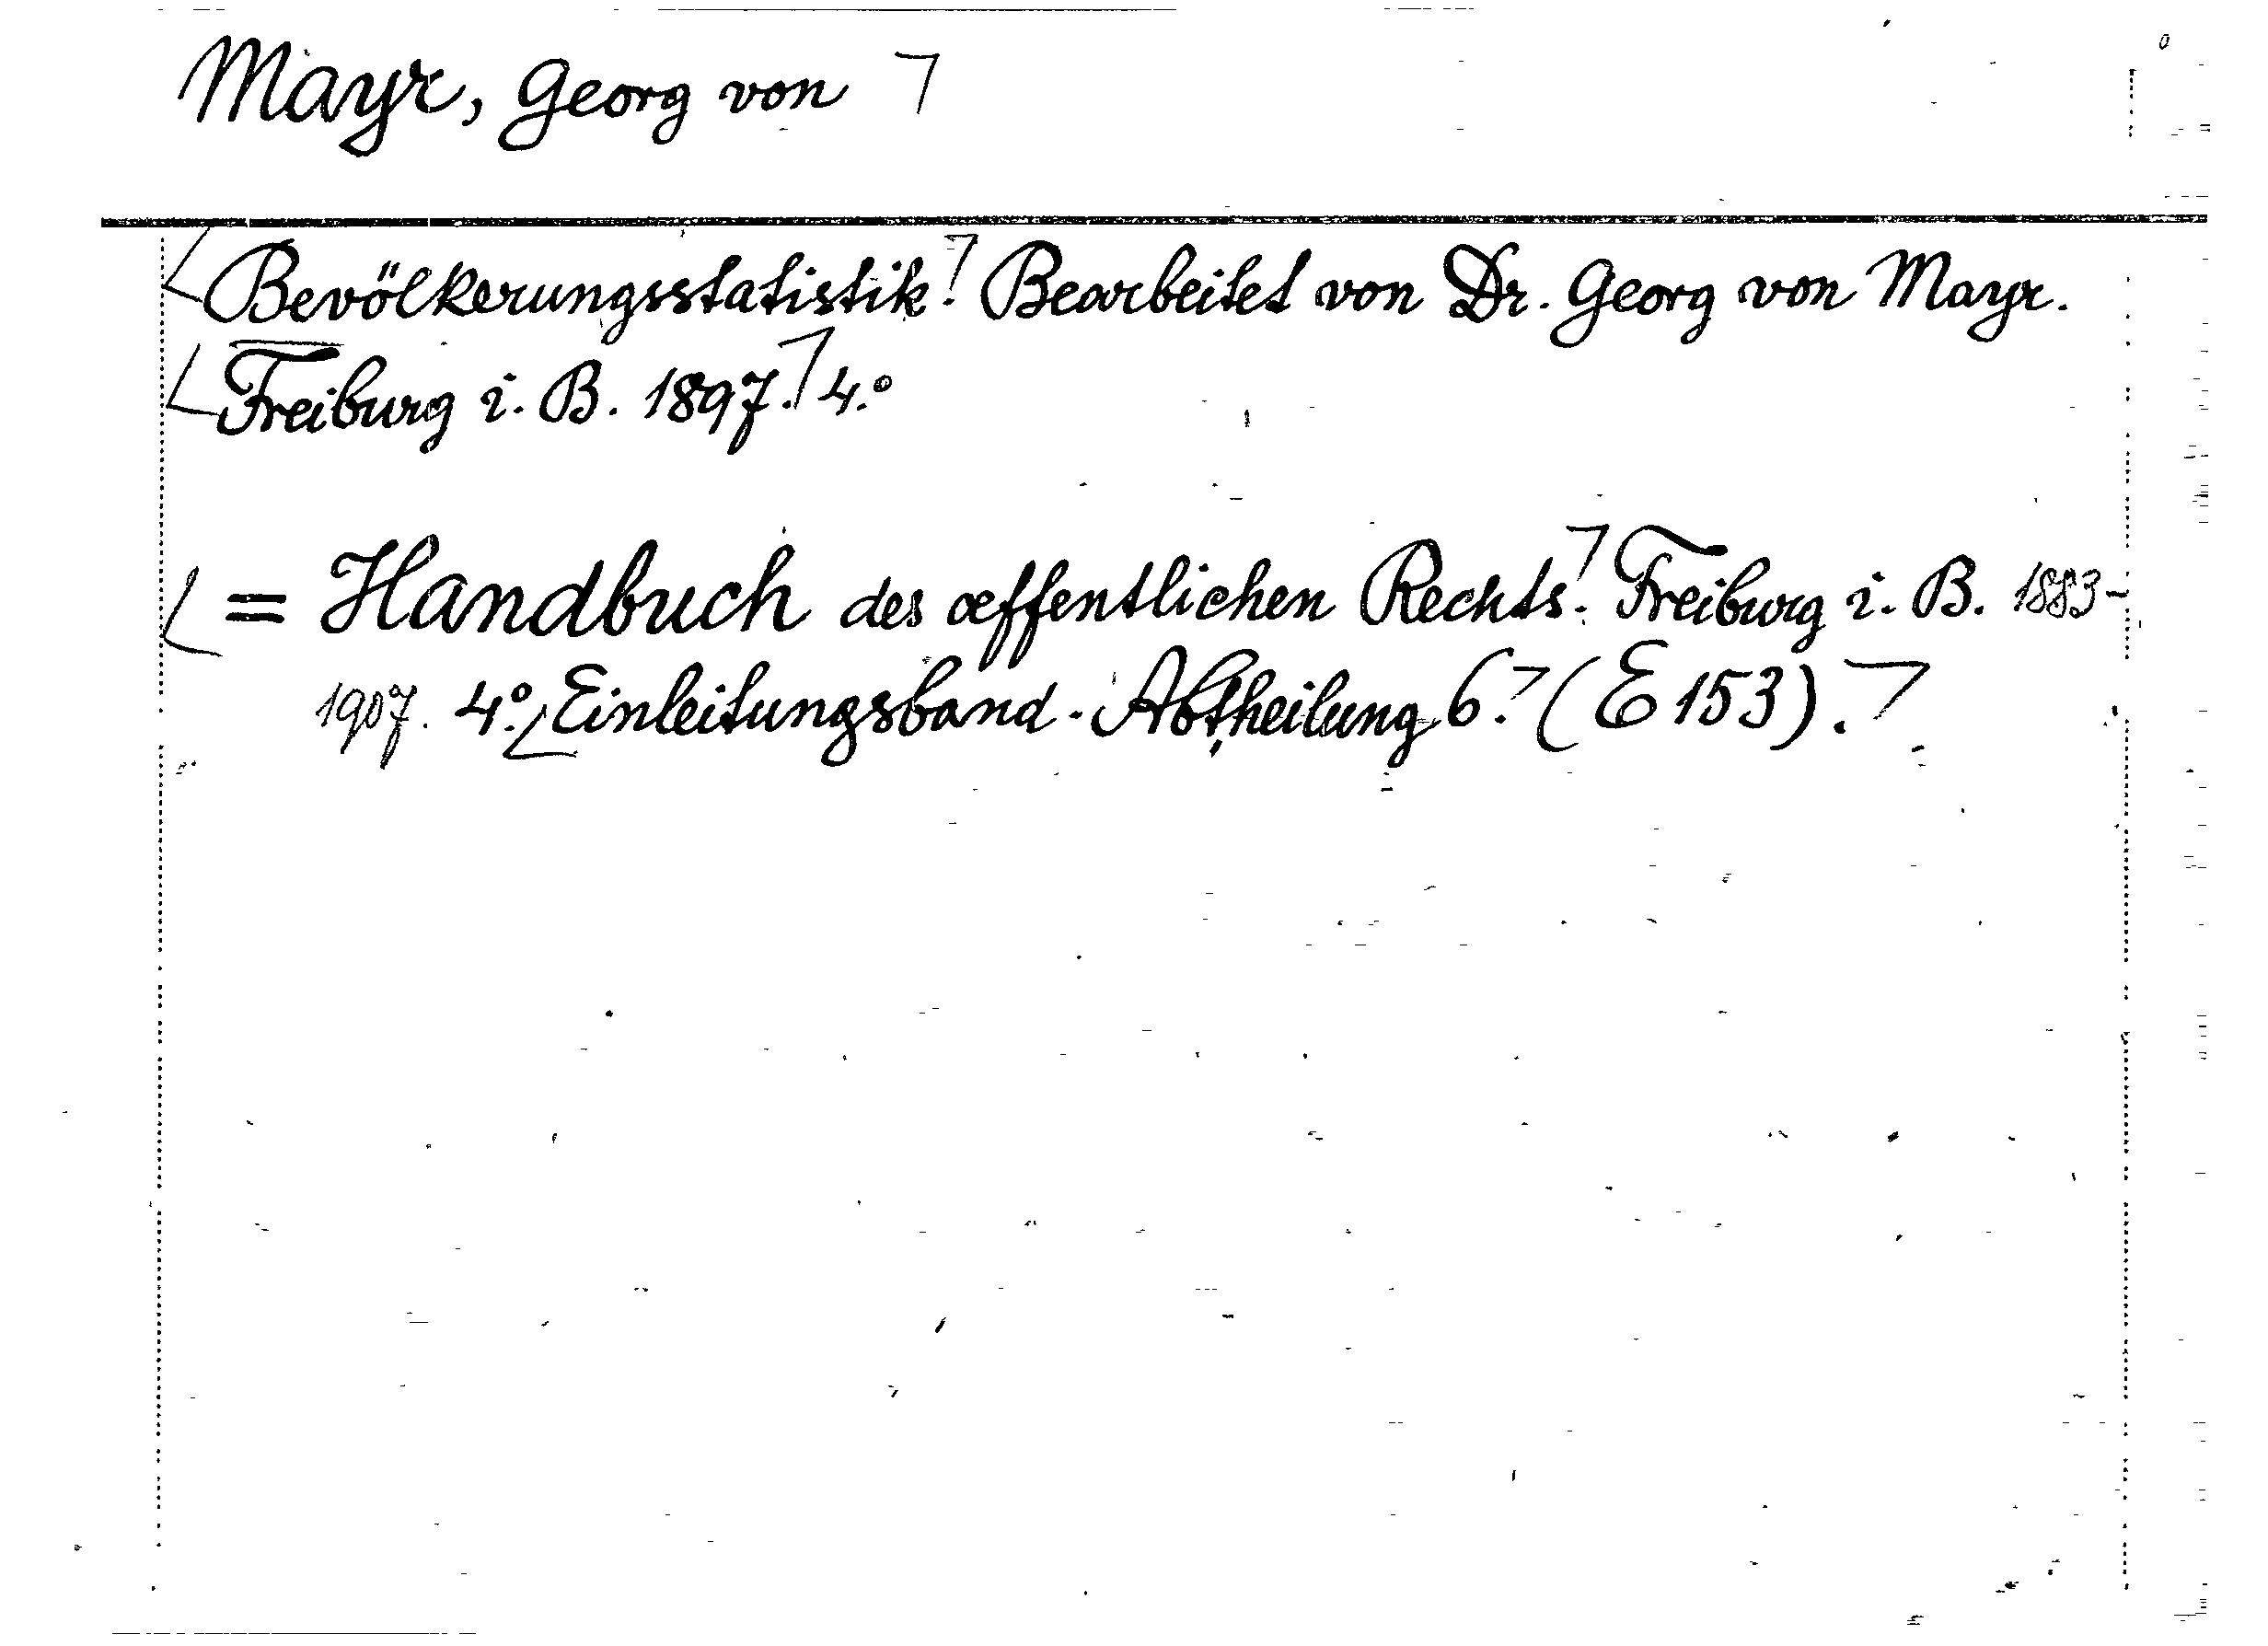 Mayr, Georg von
Bevölkerungsstatistik. Bearbeitet von Dr. Georg von Mayr.
Freiburg i. B. 1897. 4.º
= Handbuch des oeffentlichen Rechts. Freiburg i. B. 1883-
1907. 4.º Einleitungsband. Abtheilung 6. (E 153).